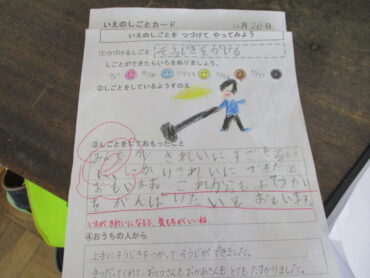 いえのしごとカード
月20日
いえのしごとを つづけて やってみよう
①つづけるしごと そうじきをかける
しごとができたらいろをぬりましょう。
②しごとをしているようすのえ
③しごとをしておもったこと
みんなが きれいにすごせる
ように きれいにできたと
おもいます。これからもふゆやすみ
もがんばりたいとおもいます。
いえがきれいになると、気もちがいいね
④おうちの人から
上手にそうじきをつかって そうじができました。
手つだってくれて、おとうさんもおかあさんも とても たすかりました。